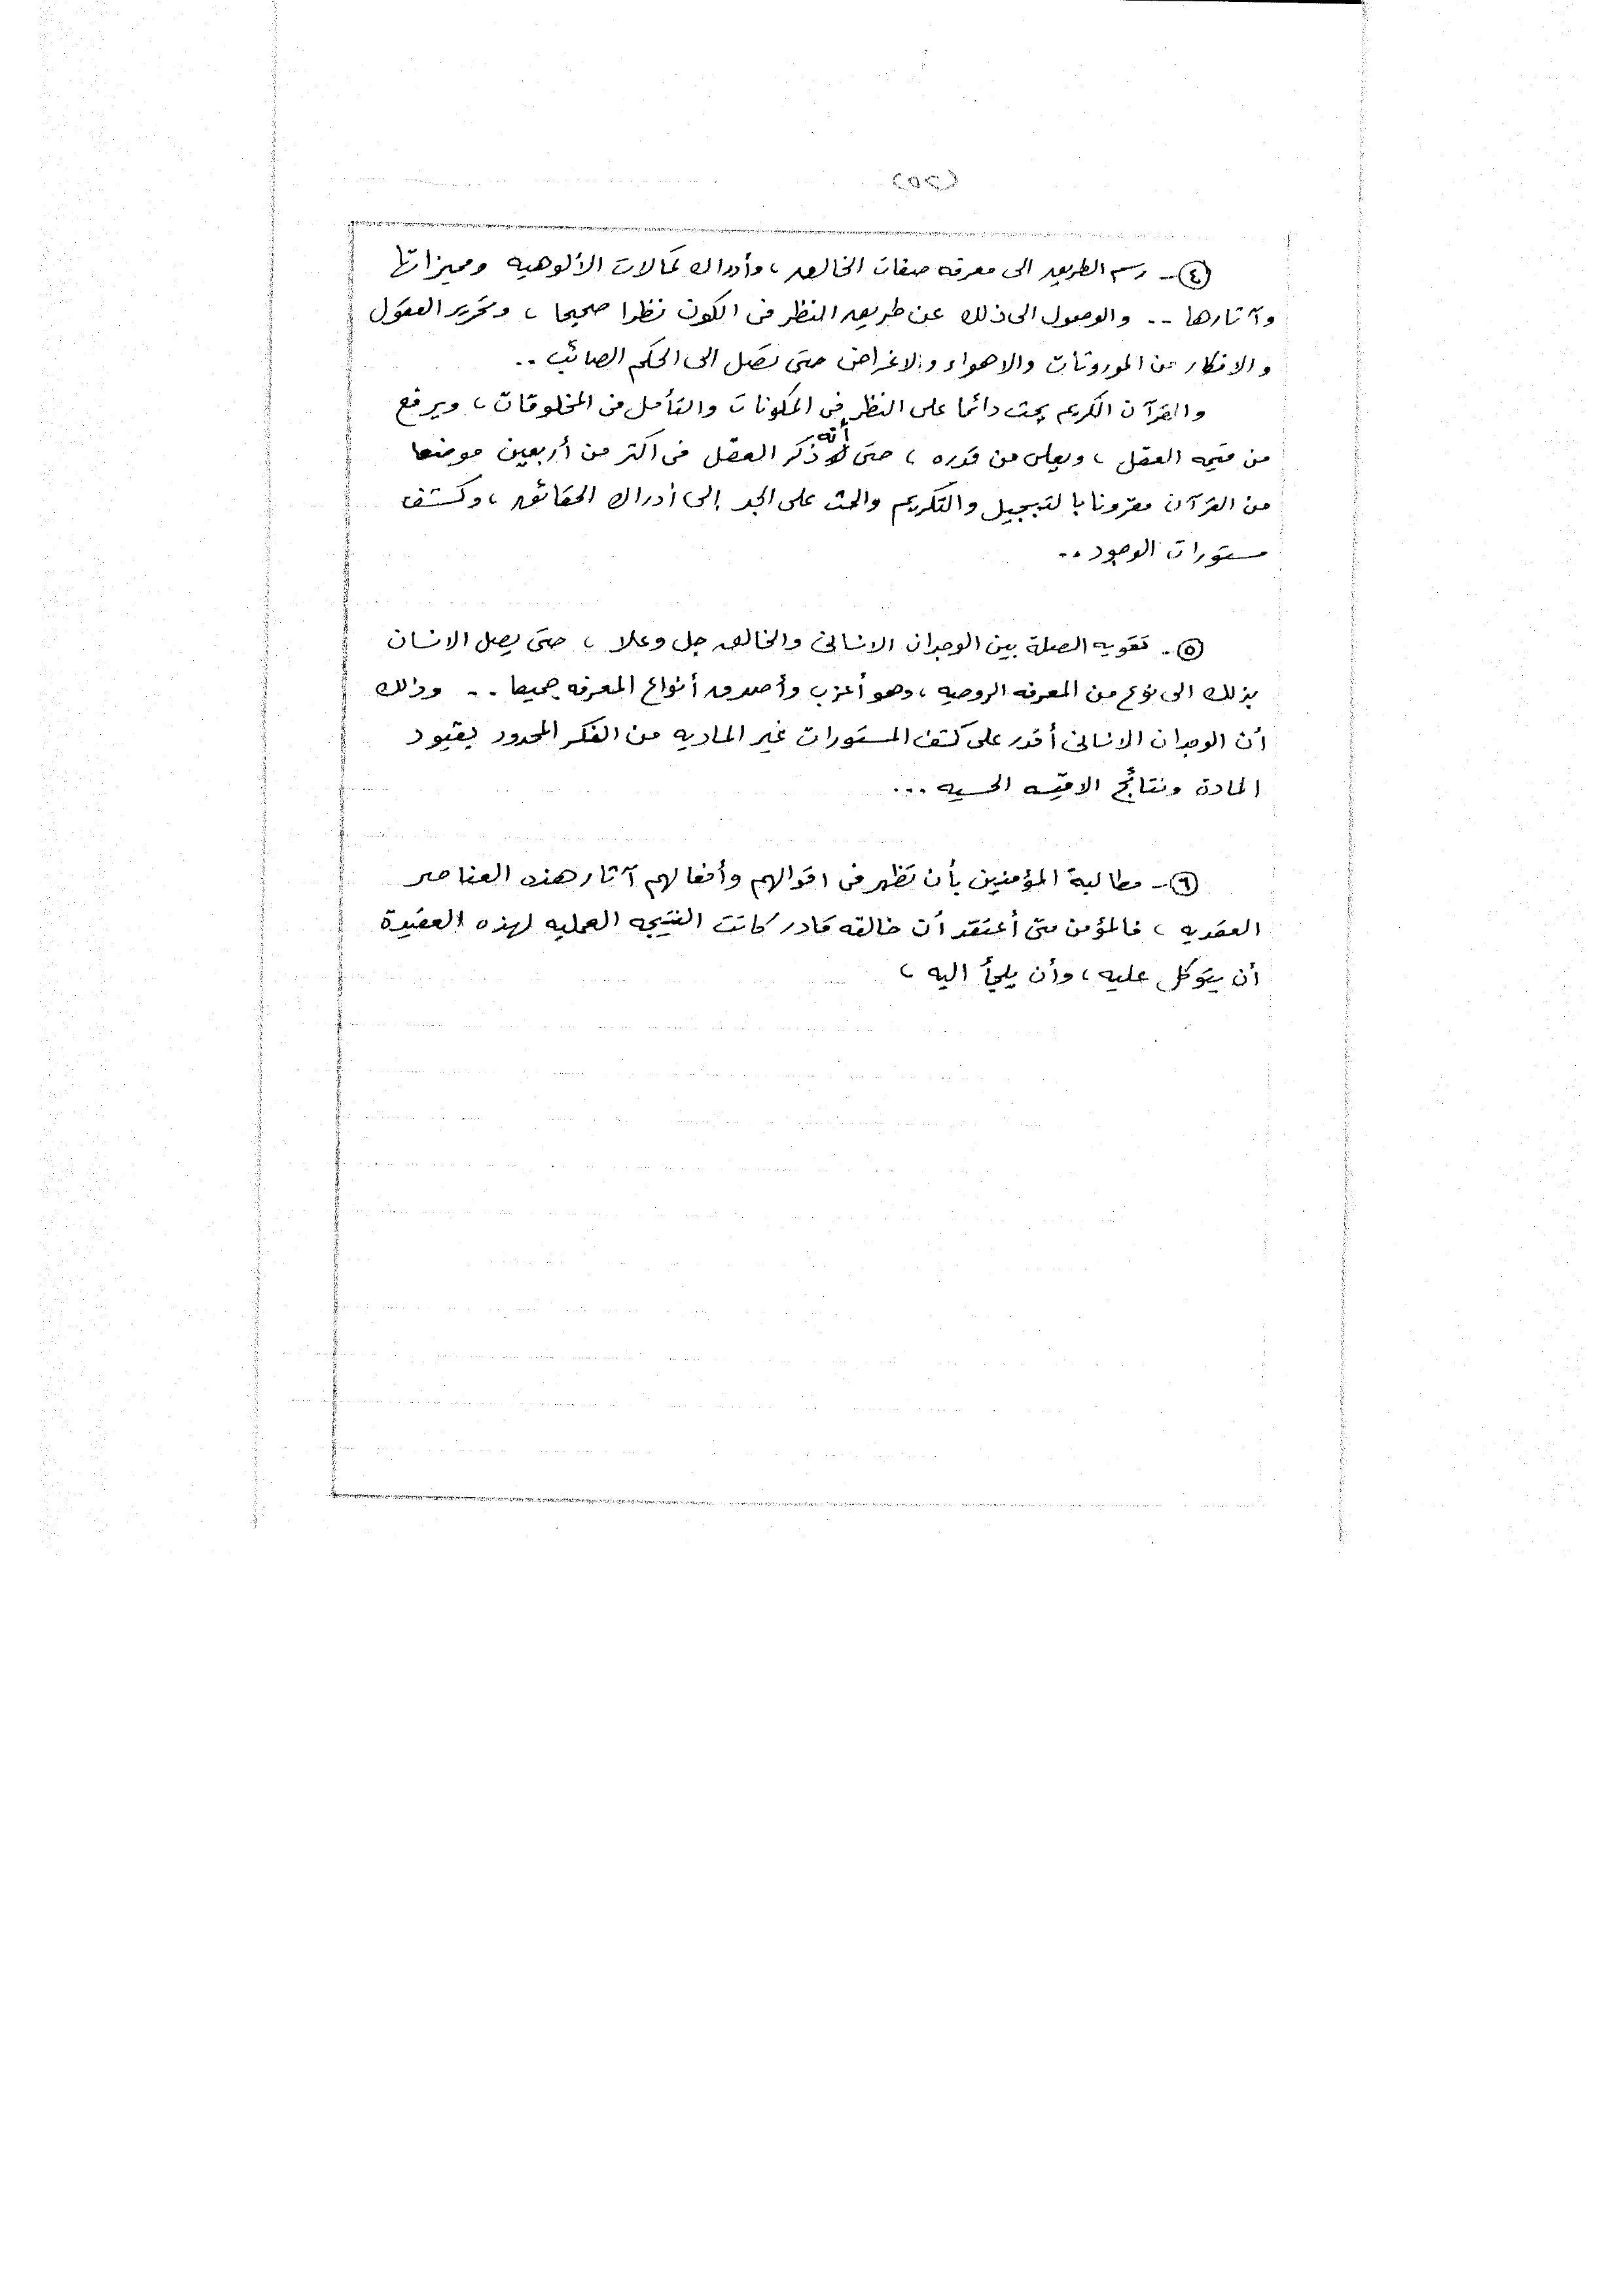 (٥٢)
(٤)- رسم الطريق الى معرفه صفات الخالق ، وأدراك كمالات الألوهيه ومميزاتها
وآثارها .. والوصول الى ذلك عن طريق النظر فى الكون نظرا صحيحا ، وتحرير العقول
والافكار من الموروثات والاهواء والاغراض حتى تصل الى الحكم الصائب ..
والقرآن الكريم يحث دائما على النظر فى المكونات والتأمل فى المخلوقات ، ويرفع
من قيمه العقل ، ويعلى من قدره ، حتى أنه ذكر العقل فى اكثر من أربعين موضعا
من القرآن مقرونا بالتبجيل والتكريم والحث على الجد إلى أدراك الحقائق ، وكشف
مستورات الوجود ..
(٥)- تقويه الصلة بين الوجدان الانسانى والخالق جل وعلا ، حتى يصل الانسان
بذلك الى نوع من المعرفه الروحيه ، وهو أعزب وأصدق أنواع المعرفه جميعا .. وذلك
أن الوجدان الانسانى أقدر على كشف المستورات غير الماديه من الفكر المحدود بقيود
المادة ونتائج الاقيسه الحسيه ...
(٦)- مطالبة المؤمنين بأن تظهر فى اقوالهم وأفعالهم آثار هذه العناصر
العقديه ، فالمؤمن متى أعتقد أن خالقه قادر كانت النتيجه العمليه لهذه العقيدة
أن يتوكل عليه ، وأن يلجأ اليه ،